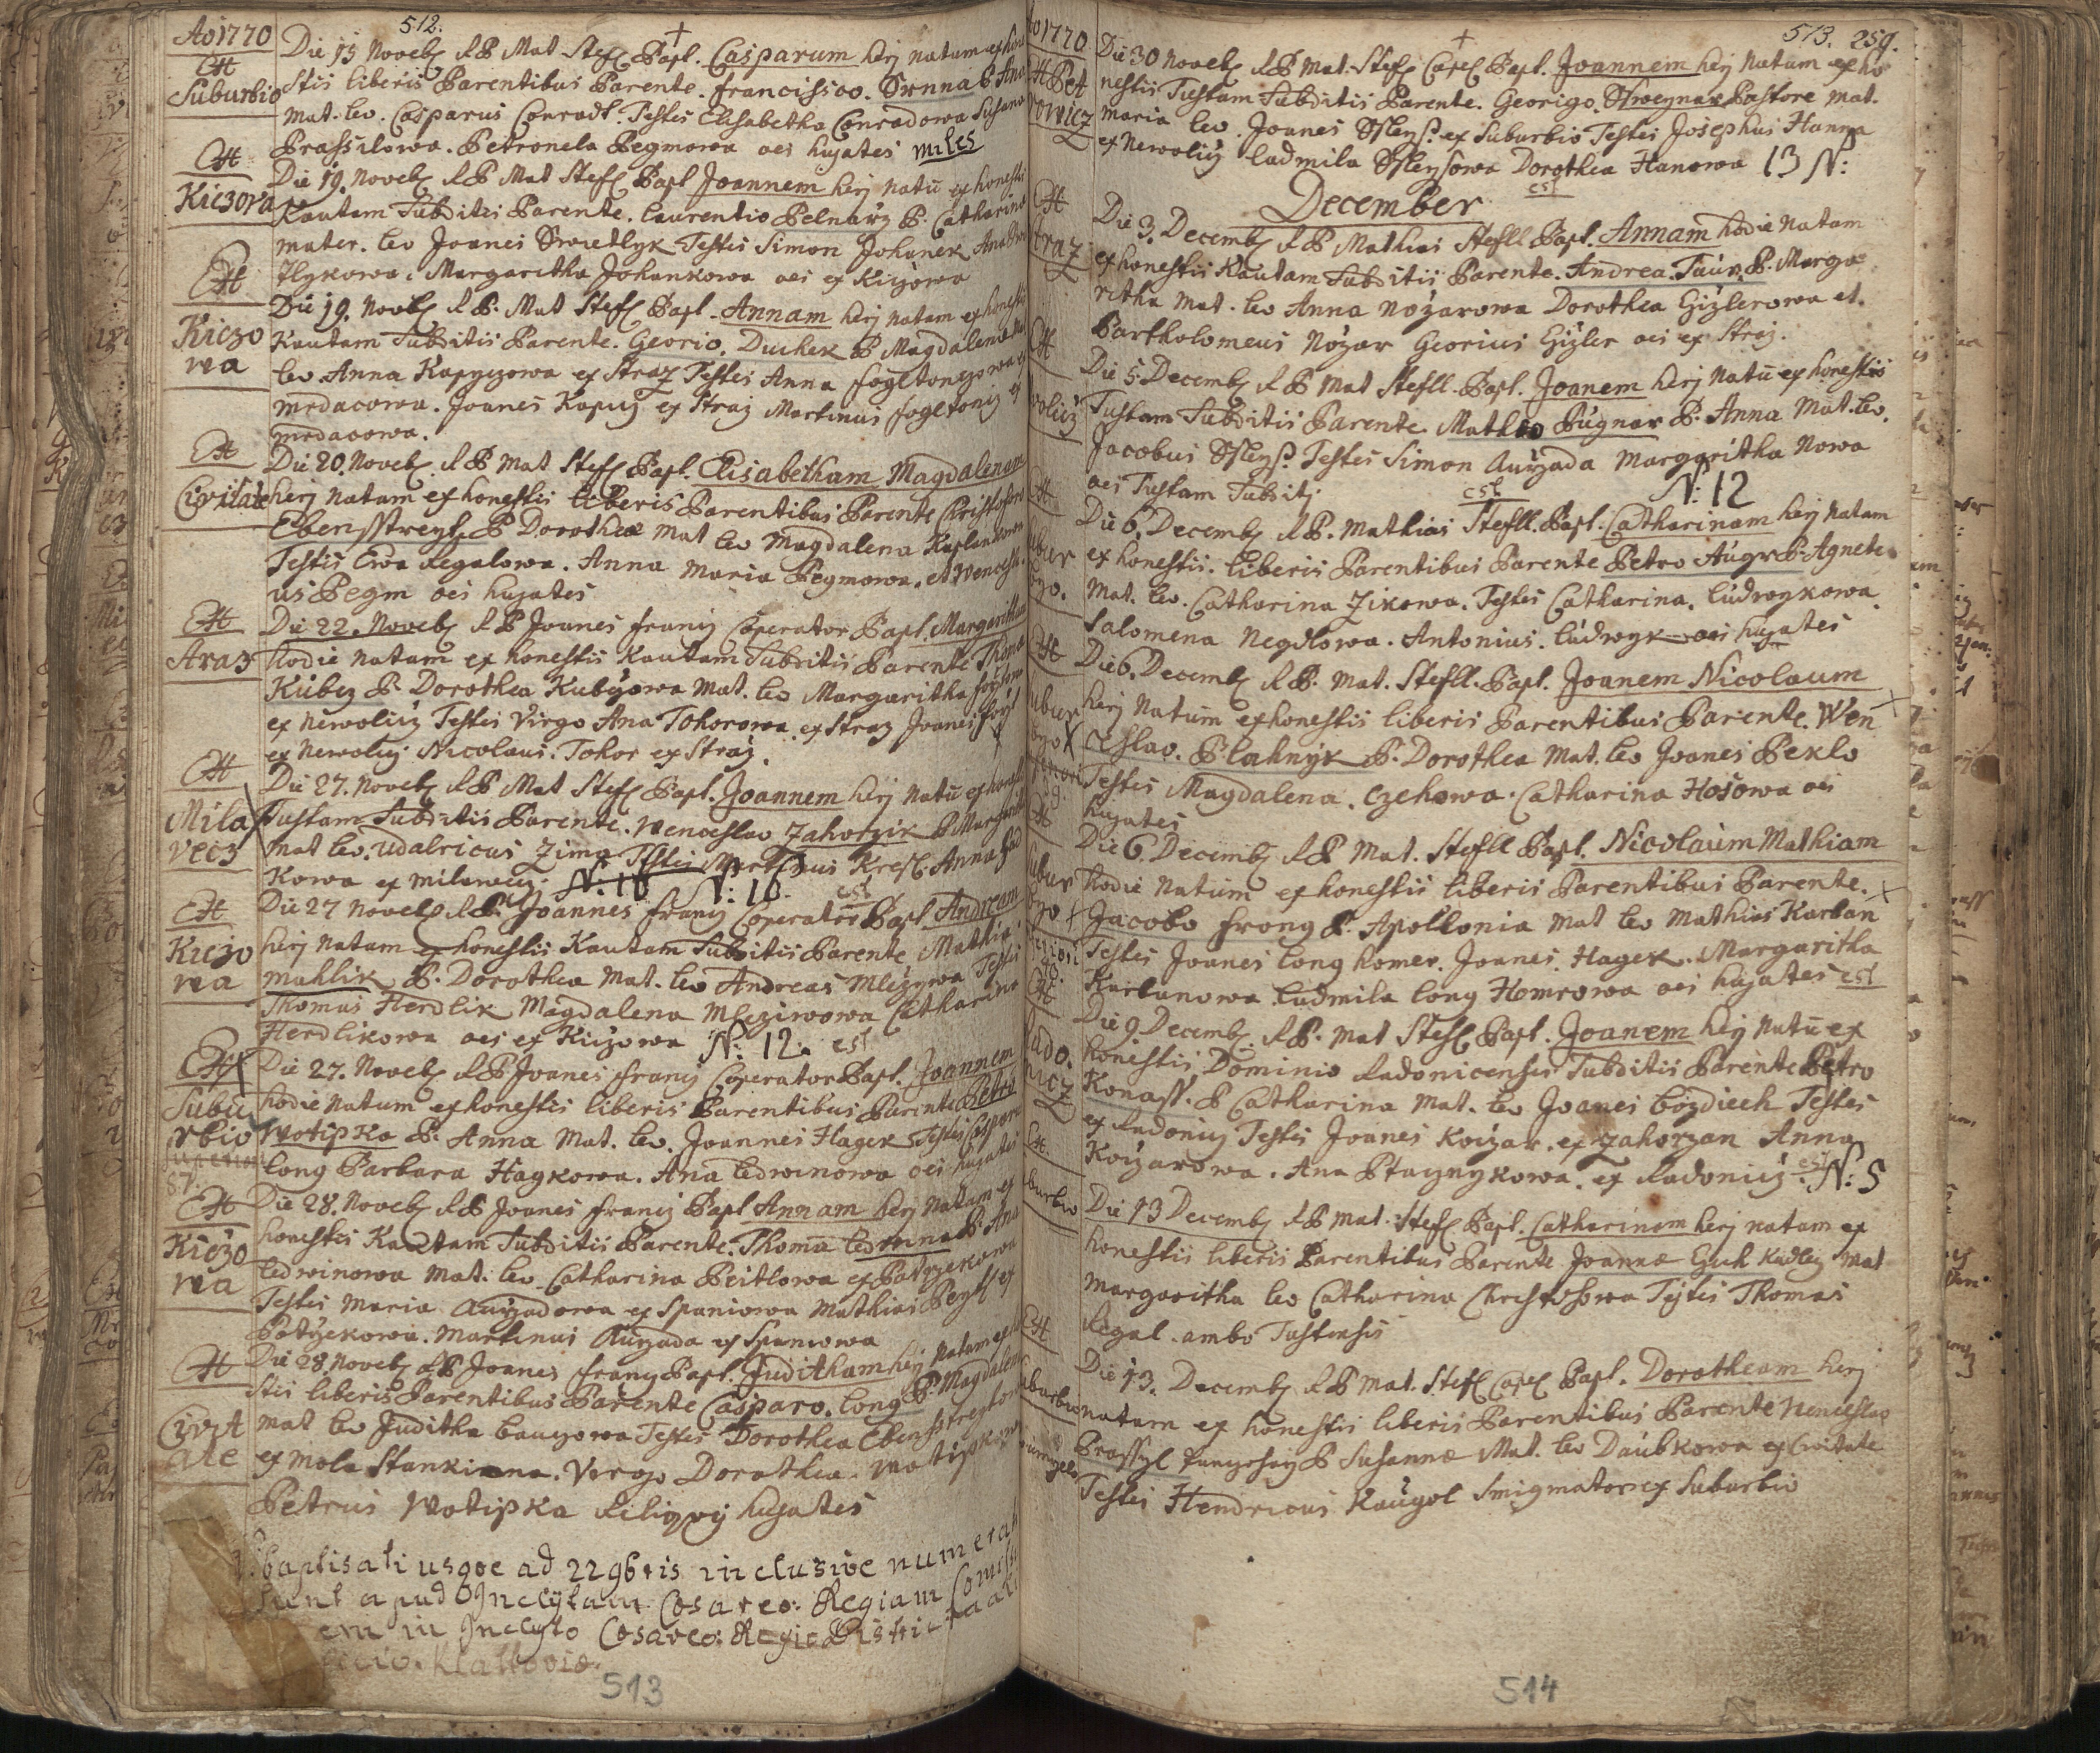 Ao 1770
512.
Ett
Suburbio
Die 15 Noveb RP Mat Stefl Bapt. Casparum herj natum ex hone
stis liberis Parentibus Parente. Francissco. Srnna P. Ana
mat. lev. Casparus Conradt. Testes Elisabetha Conradowa Susana
Prassilowa. Petronela Pegmowa oes hujates miles
Ett
Kiczowa
Die 19. Noveb RP Mat Stefl Bapt Joannem herj natu ex honestis
Kautam Subditis Parente. Laurentio Pelnarz P. Catharina
mater. lev Joanes Swietlyk Testes Simon Johanek Ana
Ilykowa. Margaritha Johankowa oes ex Kiczowa
Ett
Kiczo
wa
Die 19. Noveb RP. Mat Stefl Bapt. Annam herj natam ex honestis
Kautam Subditis Parente. Georio. Duchek P Magdalena
lev Anna Kapyczowa ex Straz Testes Anna fogltonczowa
mrdacowa. Joanes Kapiz ex Straz Martinus fogltoniz ex
mrdacowa.
Ett
Civitate
Die 20. Noveb RP Mat Stefl Bapt. Elisabetham Magdalenam
herj natam ex honestis liberis Parentibus Parente Christoforo
Ebensstreyt P Dorothea Mat lev Magdalena Kaplankowa
Testis Ewa Regalowa. Anna Maria Pegmowa. et Wencesla
us Pegm oes hujates
Ett
Straz
Die 22. Noveb RP Joanes franz Coperator Bapt. Margaritham
hodie natam ex honestis Kautam Subditis Parente Thoma
Kubez P. Dorothea Kubczowa Mat. lev Margaritha
ex Newoliz Testes Virgo Ana Tohorowa ex Straz Joanes
ex Newoliz Nicolaus. Tohor ex Straz.
Ett
Mila
vecz
Die 27. Noveb RP Mat Stefl Bapt. Joannem herj natu ex honestis
Tustam Subditis Parente. Wenceslao Zahorzik P Margaritha
mat lev. Udalricus Zima Testes Martinus Kresl. Anna
kowa ex milawecz. N: 10 N: 10. est
Ett
Kiczo
wa
Die 27 Noveb RP. Joannes franz Coperator Bapt Andream
herj natam ex honestis Kautam Subditis Parente Mathia
mahlik P. Dorothea Mat. lev Andreas Mlezywa Testes
Thomas Herdlik Magdalena Mleziwowa Catharina
Herdlikowa oes ex Kiczowa N: 12. est
Ett
Subu
rbio
superiori
87.
Die 27. Noveb RP Joanes franz Coperator Bapt. Joannem
hodie natum ex honestis liberis Parentibus Parente Petro
Wotipka P. Anna Mat. lev. Joannes Hagek Testes Caspar
Long Barbara Hagkowa. Ana Ledwinowa oes hujates
Ett
Kiczo
wa
Die 28. Noveb RP Joanes franz Bapt Annam herj natam ex
honestis Kautam Subditis Parente. Thoma Ledwina P. Ana
Ledwinowa Mat. lev Catharina Peitlowa ex Potyzekowa
Testes Maria Auyzadowa ex Spaniowa Mathias Peytl ex
Potyzekowa. Martinus Auyzada ex Spaniowa
Ett
Civit
ate
Die 28. Noveb RP Joanes franz Bapt. Juditham herj natam ex hone
stis liberis Parentibus Parente Casparo. Long P. Magdalena
mat lev Juditha Tauczowa Testes Dorothea Ebensstreytowa
ex mola Stankiana. Virgo Dorothea. Wotipkowa
Petrus Wotipka Reliqvij hujates
baptisati usqve ad 22 9bris inclusive numerati
sunt apud Inclytam Cæsareo: Regiam Comissi
em in Inclyto Cæsareo: Regio Districtuali
icio. Klattoviæ.
513
Ao 1770
513. 259.
Ett Pet
rowicz
Die 30 Noveb RP Mat. Stefl Capl Bapt. Joannem herj natum ex ho
nestis Tustam Subditis Parente. Georigo. Stroeynar Pastore mat.
Maria lev. Joanes Ssleys. ex Suburbio Testes Josephus Hanna
ex Newoliz Ludmila Ssleysowa Dorothea Hanowa 13 N:
est
December
Ett
Straz
Die 3. Decemb RP Mathias Stefll Bapt. Annam hodie natam
ex honestis Kautam Subditis Parente. Andrea. Taur. P. Marga
ritha Mat. lev Anna Nozarowa Dorothea Gizlerowa et.
Bartholomeus Nozar Georius Gizler oes ex Straz.
Ett
woliz
Die 5 Decemb RP Mat Stefll. Bapt. Joanem herj natu ex honestis
Tustam Subditis Parente. Matheo Pugnar P. Anna Mat. lev.
Jacobus Ssleys. Testes Simon Auyzada Margaritha Nowa
oes Tustam Subditj. est N: 12
Ett
ubur
byo.
Die 6. Decemb RP. Mathias Stefll. Bapt. Catharinam herj natam
ex honestis. liberis Parentibus Parente Petro Augr P. Agnete
Mat. lev. Catharina Zikowa. Testes Catharina. Ludwykowa.
Salomena Negdlowa. Antonius. Ludwyk oes hujates
Ett
ubur
byo
feriori
Die 6. Decemb RP. Mat. Stefll. Bapt. Joanem Nicolaum
herj natum ex honestis liberis Parentibus Parente. Wen
ceslao. Blahnyk P. Dorothea Mat. lev Joanes Peklo
Testes Magdalena. Czehowa. Catharina Hosowa oes
hujates
Ett
ubur
byo
Die 6. Decemb RP Mat. Stefll Bapt. Nicolaum Mathiam
hodie natum ex honestis liberis Parentibus Parente.
Jacobo Frong P. Apollonia Mat lev Mathias Karban
Testes Joanes Long homer. Joanes. Hagek. Margaritha
Karbanowa Ludmila Long Homrowa oes hujates est
Ett
Rado.
nicz
Die 9. Decemb. RP. Mat Stefl Bapt. Joanem herj natu ex
honestis Dominio Radonicensis Subditis Parente Petro
Konass. P Catharina Mat. lev Joanes Bozdiech Testes
ex Radoniz Testes Joanes Koizar. ex Zahorzan Anna
Koizarowa. Ana Ptacznykowa. ex Radoniz. est N: 5
Ett.
burbio
Die 13 Decemb RP Mat. Stefl Bapt. Catharinam herj natam ex
honestis liberis Parentibus Parente Joanne Guh Kudlez Mat
Margaritha lev Catharina Christofowa Testes Thomas
Regal. ambo Tustensis
Ett
burbio
Die 13. Decemb RP Mat. Stefl Capl Bapt. Dorotheam herj
natam ex honestis liberis Parentibus Parente Wenceslao
Prassyl P Susannæ Mat. lev Daubkowa ex Civitate
Testes Hendricus Kaugol Smigmator ex Suburbio
514